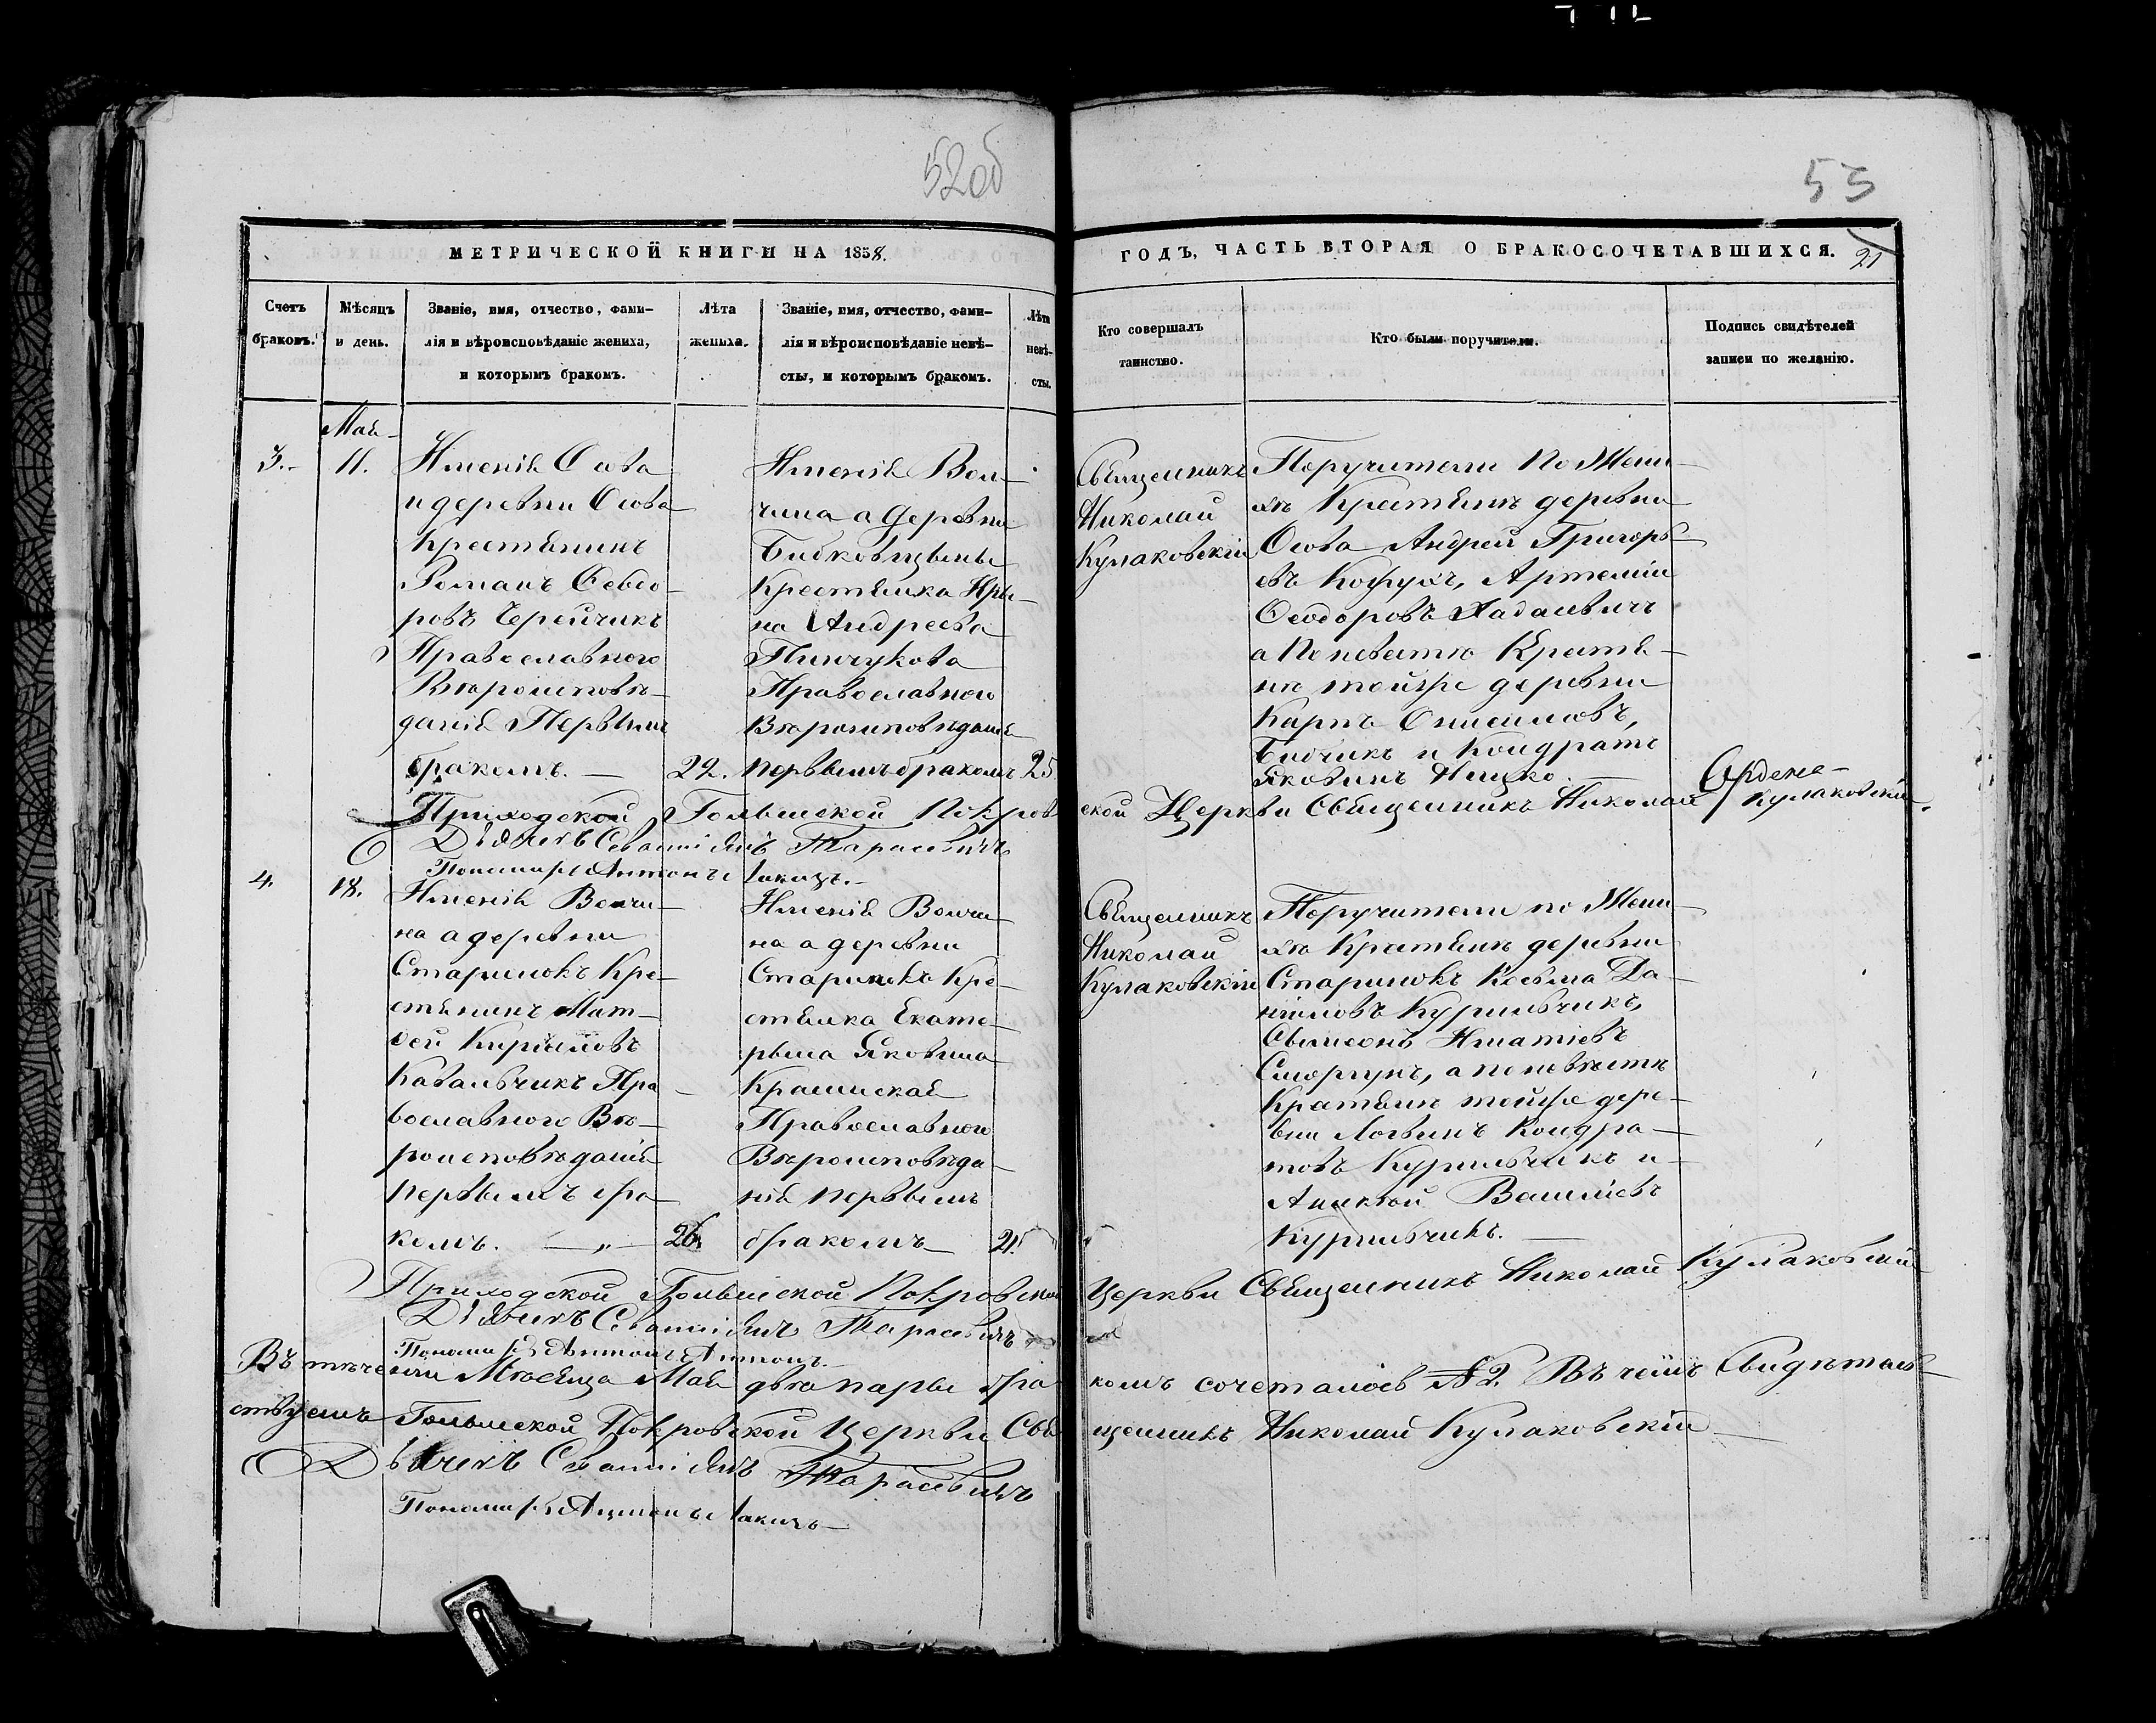 52об
53
МЕТРИЧЕСКОЙ КНИГИ НА 1858.
ГОДЪ, ЧАСТЬ ВТОРАЯ О БРАКОСОЧЕТАВШИХСЯ.
21
Счетъ
браковъ.
Мѣсяцъ
и день.
Званіе, имя, отчество, фами-
лія и вѣроисповѣданіе жениха,
и которымъ бракомъ.
Лѣта
жениха.
Званіе, имя, отчество, фами-
лія и вѣроисповѣданіе невѣ-
сты, и которымъ бракомъ.
Лѣта
невѣ-
сты.
Кто совершалъ
таинство.
Кто были поручители.
Подпись свидѣтелей
записи по желанію.
Мая
3.
11.
Именія Осова
и деревни Осова
Крестянинъ
Романъ Ѳеодо-
ровъ Черейчикъ
Православного
Вѣроисповѣ-
данія Первымъ
бракомъ.
22.
Именія Вол-
чина а деревни
Бидковщызны
Крестянка Иры-
на Андреева
Пинчукова
Православного
Вѣроисповѣданія
первымъ бракомъ
25
Священникъ
Николай
Кулаковскій
Поручители По Жени-
хѣ Крестяни деревни
Осова Андрей Григорь-
евъ Кожухъ, Артемій
Ѳеодоровъ Хадасевичъ
а По невестѣ Крестя-
не тойже деревни
Карпъ Онисимовъ,
Бидчикъ и Кондратъ
Яковинъ Ницко.
Приходской Голынской Покров
ской Церкви Священникъ Николай
Кулаковскій.
Дьячекъ Севастіянъ Тарасевичъ
Пономарь Антонъ Лакизъ.
4.
18.
Именія Волчи-
на а деревни
Старинокъ Кре-
стянинъ Мат-
ѳей Кириловъ
Кавальчикъ Пра-
вославного Вѣ-
роисповѣданія
первымъ бра-
комъ.
26
Именія Волчи-
на а деревни
Старинокъ Кре-
стянка Екате-
рына Яковина
Крамнская
Православного
Вѣроисповѣда-
нія первымъ
бракомъ
21.
Священникъ
Николай
Кулаковскій
Поручители по Жени-
хѣ Крестяни деревни
Старинокъ Косьма Да-
ніиловъ Курильчикъ,
Сымеонъ Игнатіевъ
Сморгунъ, а по невѣстѣ
Крестяни тойже дере-
вни Логвинъ Кондра-
товъ Курильчикъ и
Василіевъ
Курильчикъ.
Приходской Голынской Покровской
Церкви Священникъ Николай Кулаковскій
Дьячекъ Севастіянъ Тарасевичъ
Пономарь Антонъ
Въ теченіи Мѣсяца Мая два пары бра
комъ сочеталось № 2. Въ чемъ Свидѣтель-
ствуемъ Голынской Покровской Церкви Свя
щенникъ Николай Кулаковскій
Дьячекъ Севастіянъ Тарасевичъ
Пономарь Антонъ Лакизъ